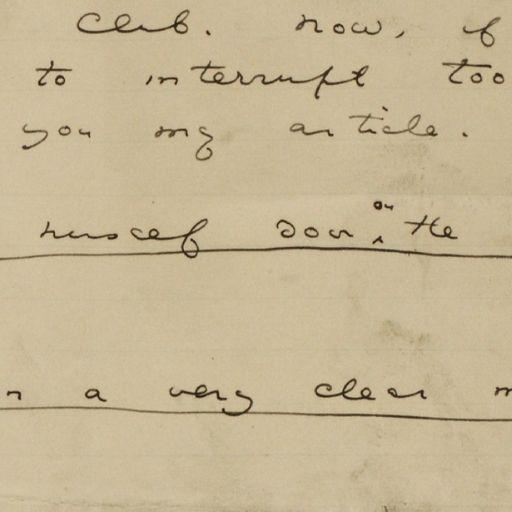 Club. Now, if
to interrupt too
you my article.
himself down on the
n a very clear m